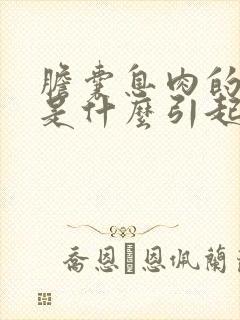 膽囊息肉的
是什麼引起
喬恩 恩佩蘭